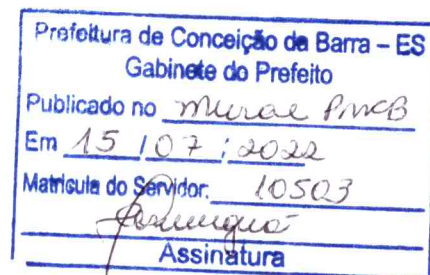 Prefeitura de Conceição da Barra – ES
Gabinete do Prefeito
Publicado no Mural PMCB
Em 15 / 07 / 2022
Matrícula do Servidor: 10503
Assinatura